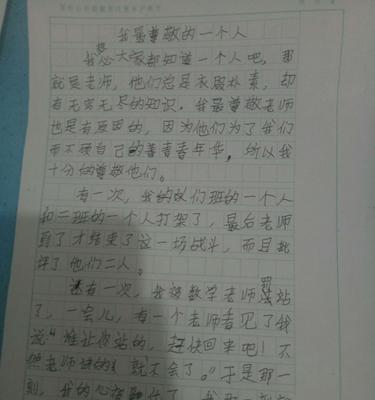 我最尊敬的一个人
我想大家都知道一个人吧，那
就是老师，他们总是衣服朴素，却
有无穷无尽的知识。我最尊敬老师
也是有原因的，因为他们为了我们
而不顾自己的青青年华，所以我
十分的尊敬他们。
有一次，我的们班的一个人
和二班的一个人打架了，最后老师
到了才结束了这一场战斗，而且批
评了他们二人。
还有一次，我被数学老师罚站
了，一会儿，有一个老师看见了我
说“谁让你站的，赶快回来吧！不
然老师讲的，就不会了。”于是那一
刻，我的心